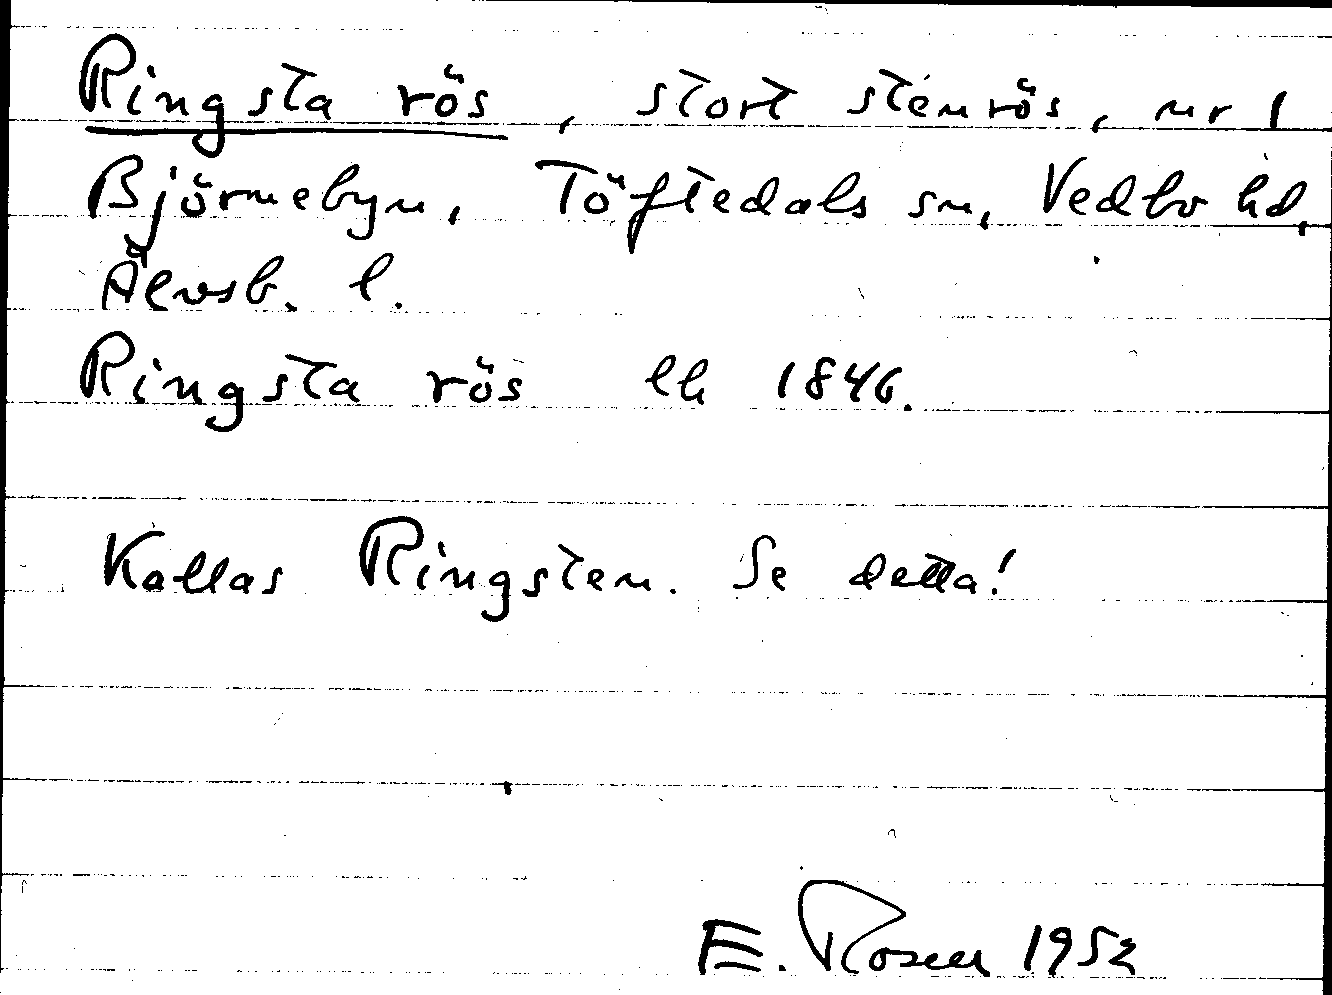 Ringsta rös, stort stenrös, nr 1
Björnebyn, Töftedals sn, Vedbo hd,
Älvsb. l.
Ringsta rös lh 1846.
Kallas Ringsten. Se detta!
E. Rosell 1952